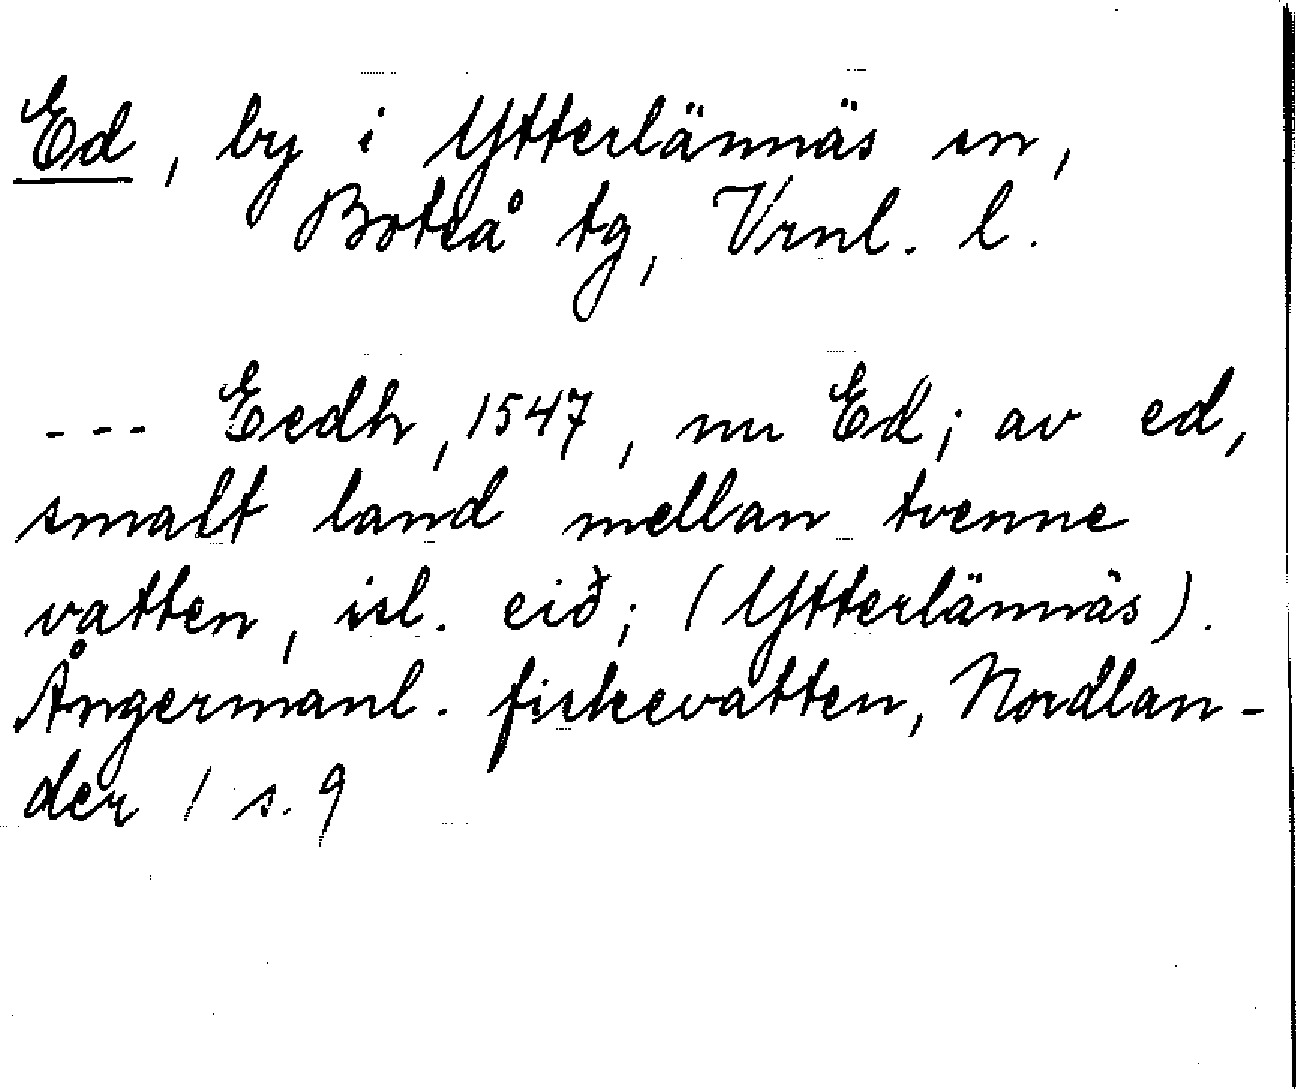 Ed, by i Ytterlännäs sn,
Boteå tg, Vrnl. l.
--- Eedh, 1547, nu Ed; av ed,
smalt land mellan tvenne
vatten, isl. eið; (Ytterlännäs).
Ångermanl. fiskevatten, Nordlan-
der 1 s. 9